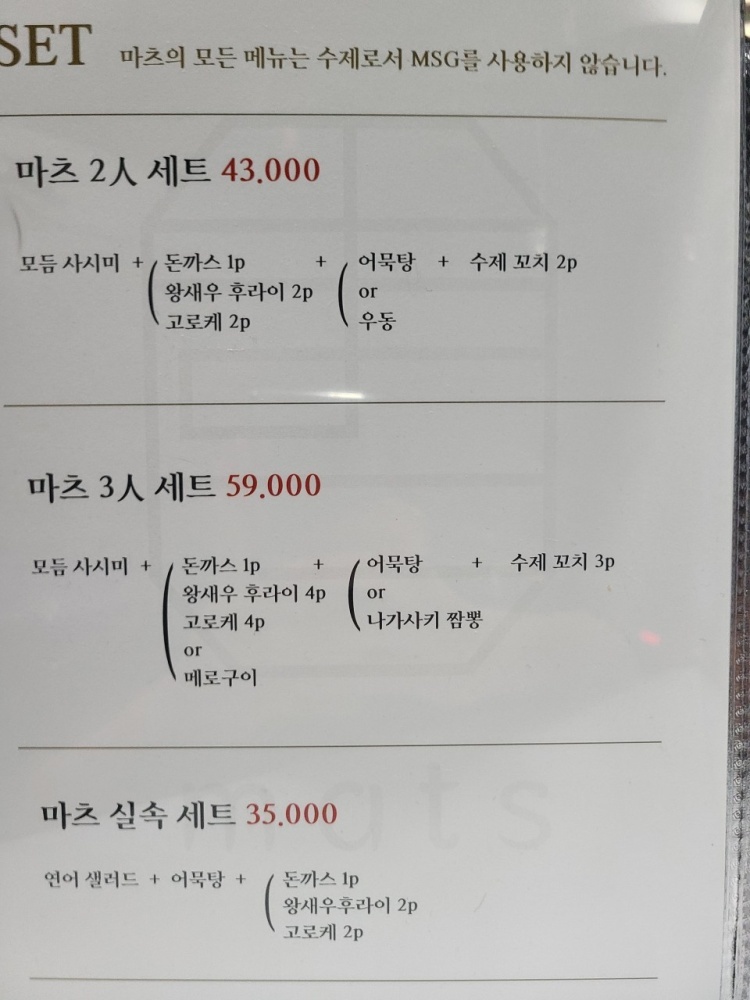 SET 마츠의 모든 메뉴는 수제로서 MSG를 사용하지 않습니다.
마츠 2人 세트 43.000
모듬 사시미 + 돈까스 1p + 어묵탕 + 수제 꼬치 2p
왕새우 후라이 2p or
고로케 2p 우동
마츠 3人 세트 59.000
모듬 사시미 + 돈까스 1p + 어묵탕 + 수제 꼬치 3p
왕새우 후라이 4p or
고로케 4p 나가사키 짬뽕
or
메로구이
mats
마츠 실속 세트 35.000
연어 샐러드 + 어묵탕 + 돈까스 1p
왕새우후라이 2p
고로케 2p